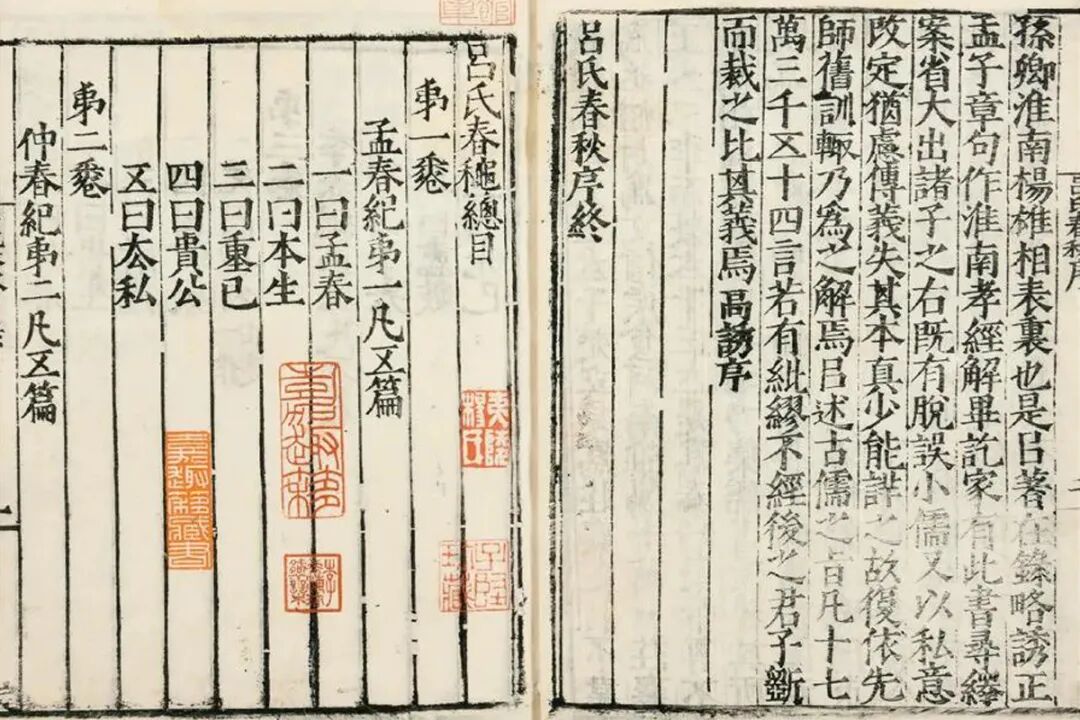 孫卿淮南楊雄相表裏也是以著在錄略誘正
孟子章句作淮南孝經解畢訖家有此書尋繹
案省大出諸子之右既有脫誤小儒又以私意
改定猶慮傳義失其本真少能詳之故復依先
師舊訓輒乃為之解焉以述古儒之旨凡十七
萬三千五十四言若有紕繆不經後之君子斷
而裁之比其義焉高誘序
呂氏春秋序終
呂氏春秋總目
弟一卷
孟春紀弟一凡五篇
一曰孟春
二曰本生
三曰重已
四曰貴公
五曰去私
弟二卷
仲春紀弟二凡五篇